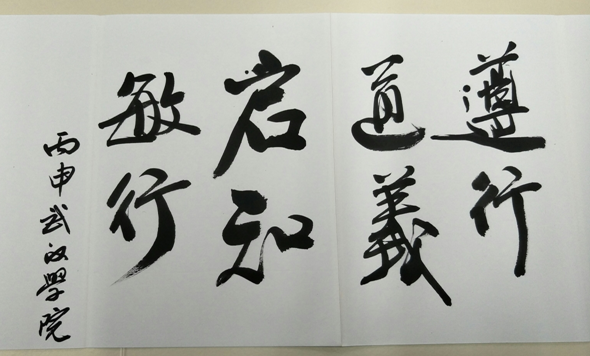 遵行
道義
启知
敏行
丙申武汉學院